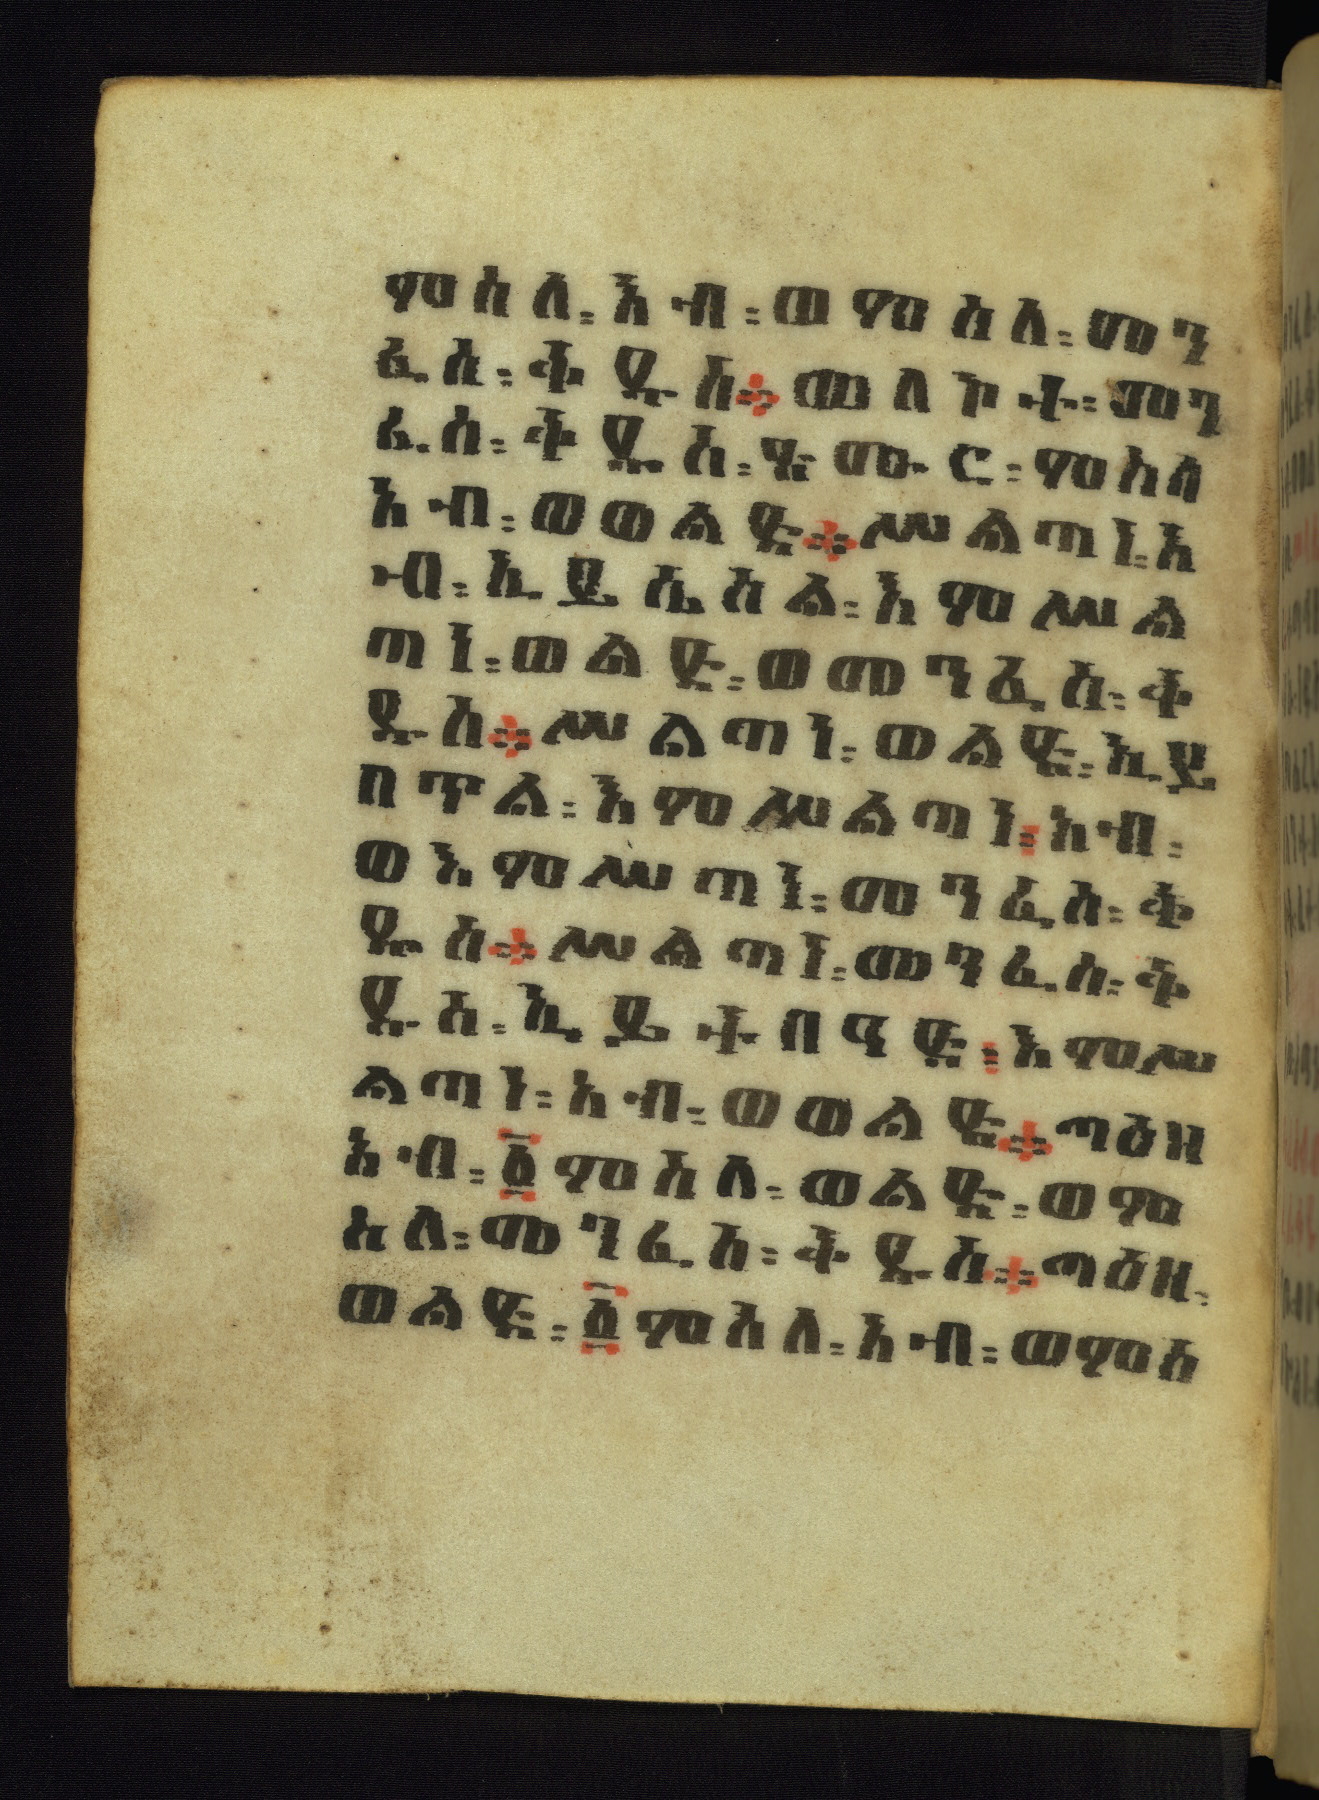 ምስለ፡ አብ፡ ወምስለ፡ መን
ፈስ፡ ቅዱስ። መለኮተ፡ መን
ፈስ፡ ቅዱስ፡ ፅሙር፡ ምስለ
አብ፡ ወወልድ። ሥልጣነ፡ አ
ብ፡ ኢይሴስል፡ እምሥል
ጣነ፡ ወልድ፡ ወመንፈስ፡ ቅ
ዱስ። ሥልጣነ፡ ወልድ፡ ኢይ
በጥል፡ እምሥልጣነ፡ አብ፡
ወእምሥጣነ፡ መንፈስ፡ ቅ
ዱስ። ሥልጣነ፡ መንፈስ፡ ቅ
ዱስ፡ ኢይትበዓድ፡ እምሥ
ልጣነ፡ አብ፡ ወወልድ። ግዕዘ
አብ፡ ፩ምስለ፡ ወልድ፡ ወም
ስለ፡ መንፈስ፡ ቅዱስ። ግዕዘ፡
ወልድ፡ ፩ምስለ፡ አብ፡ ወምስ